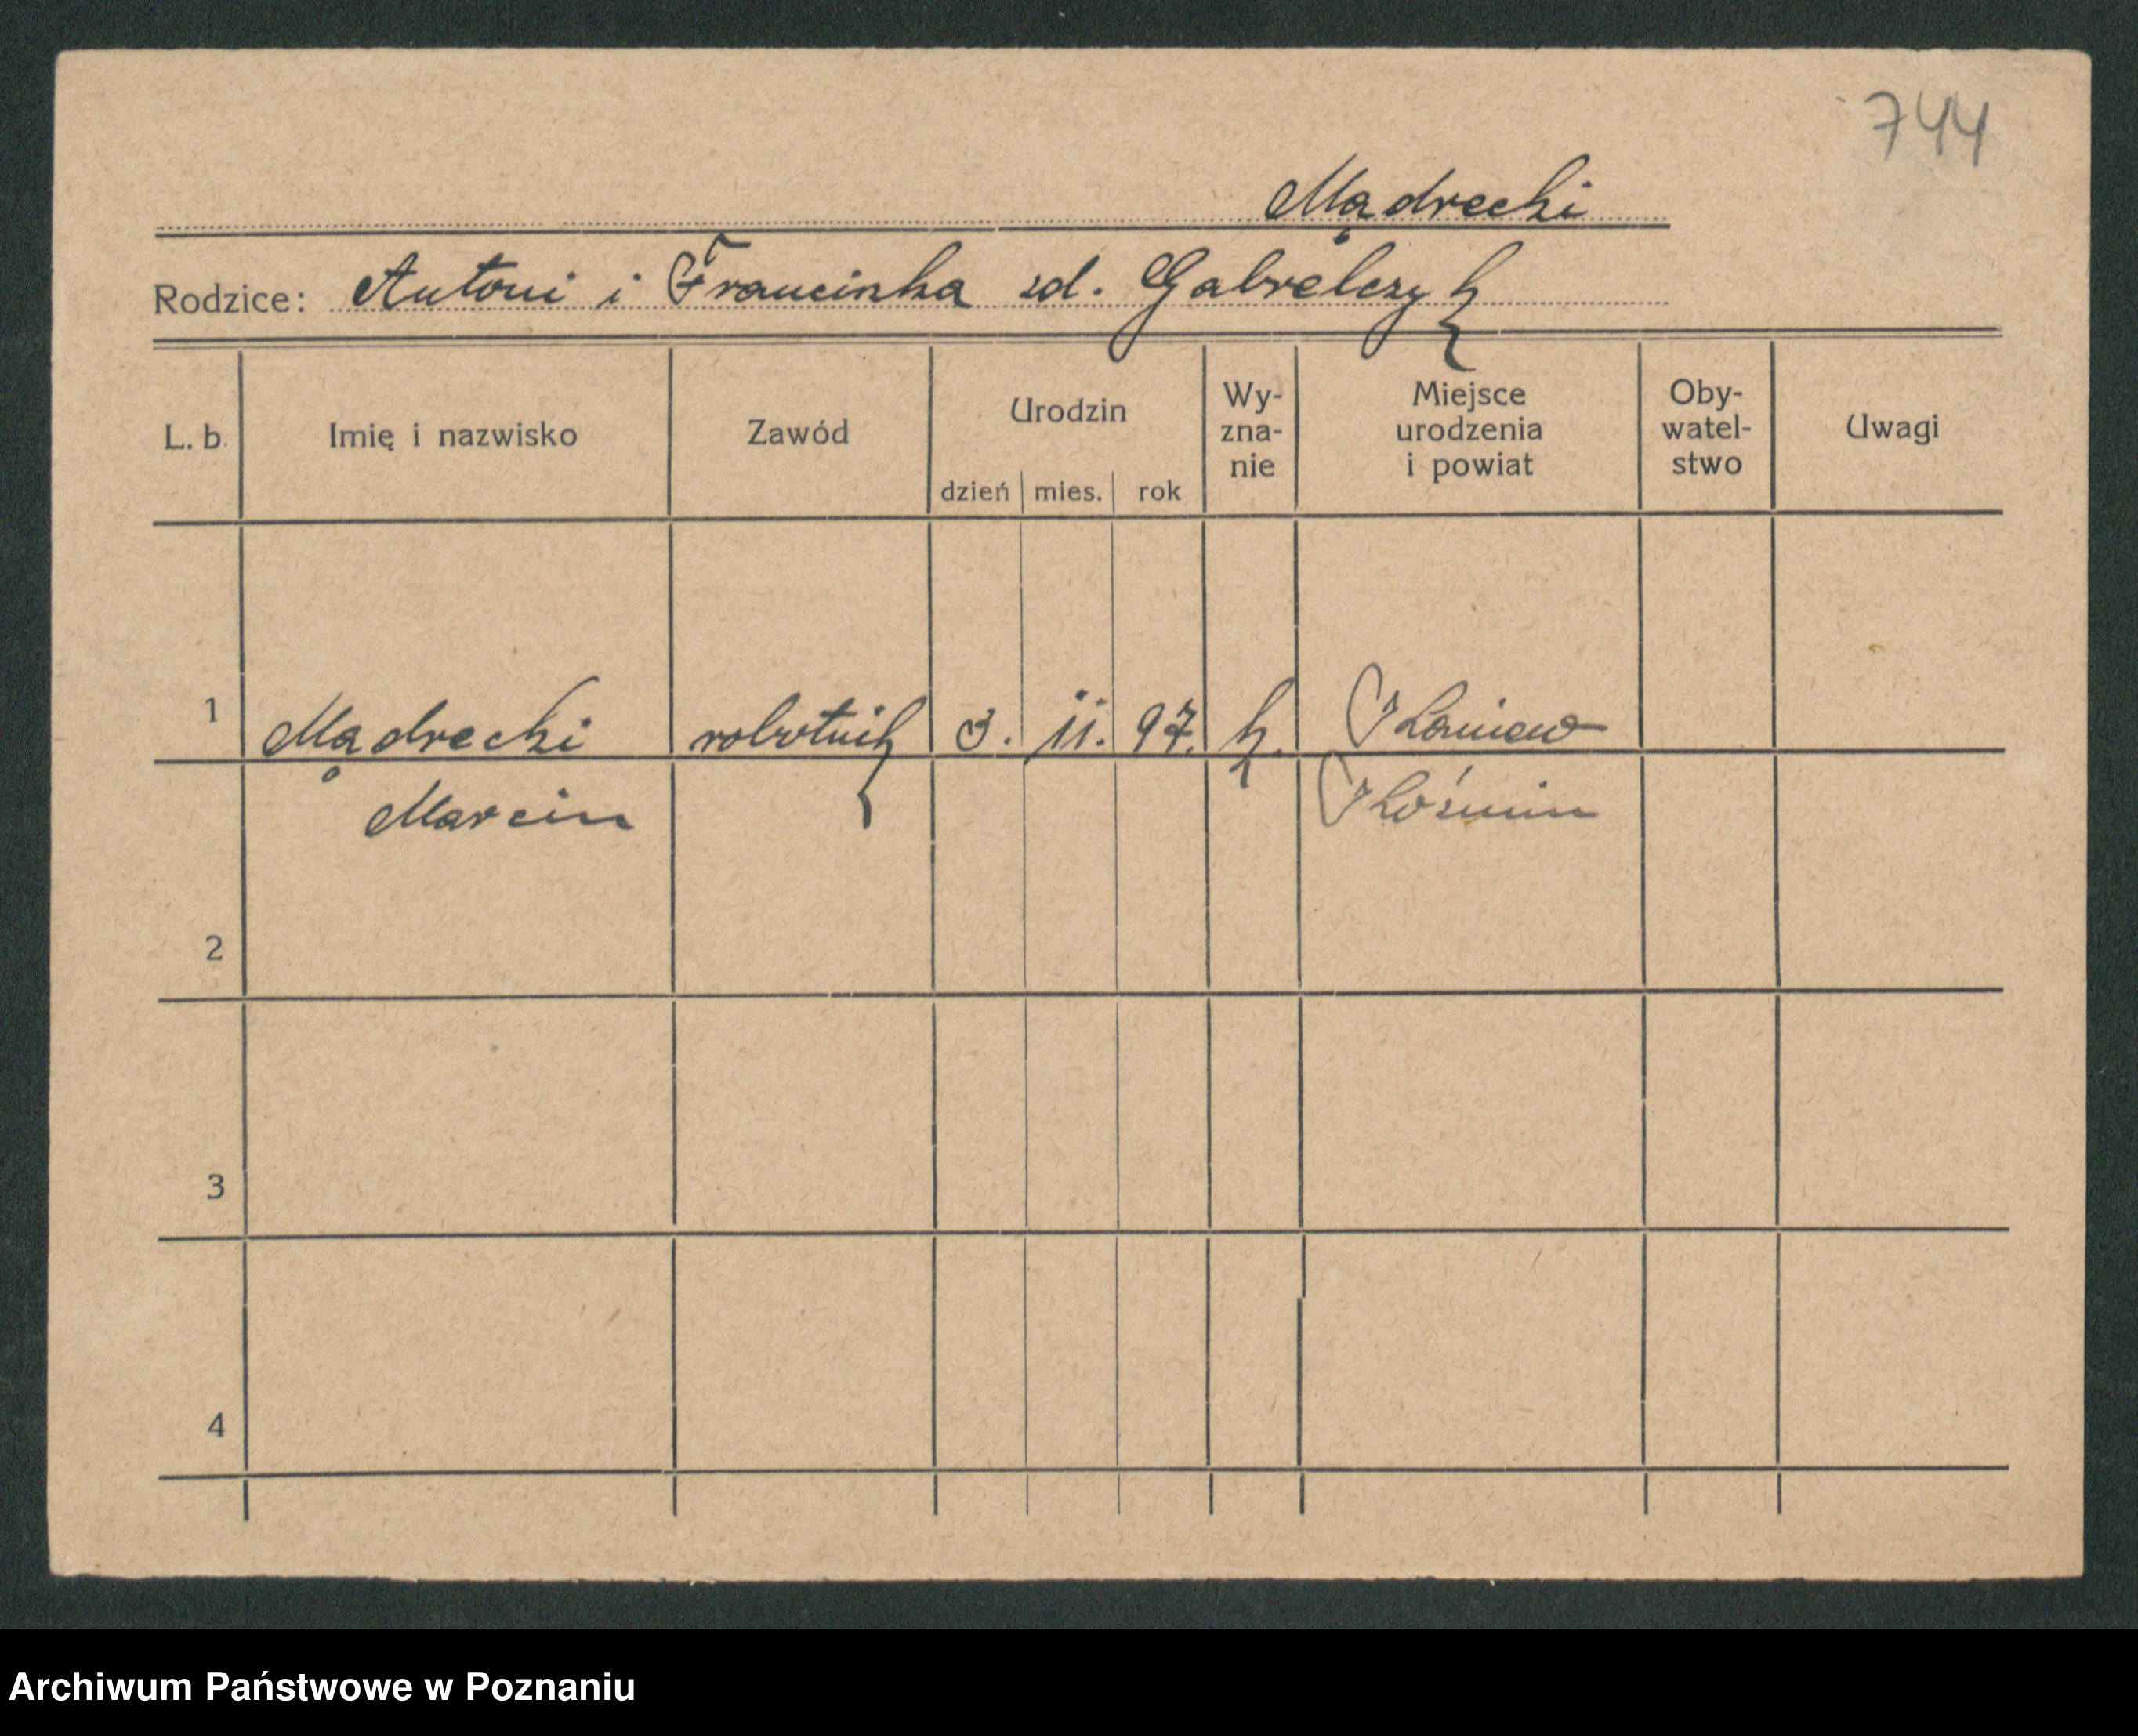 744
Mądrecki
Rodzice: Antoni i Franciszka zd. Gabrelczyk
L. b. Imię i nazwisko Zawód Urodzin dzień mies. rok Wy-zna-nie Miejsce urodzenia i powiat Oby-watel-stwo Uwagi
1 Mądrecki robotnik 3. 11. 97. k. Kaniew
Marcin Koźmin
2
3
4
Archiwum Państwowe w Poznaniu